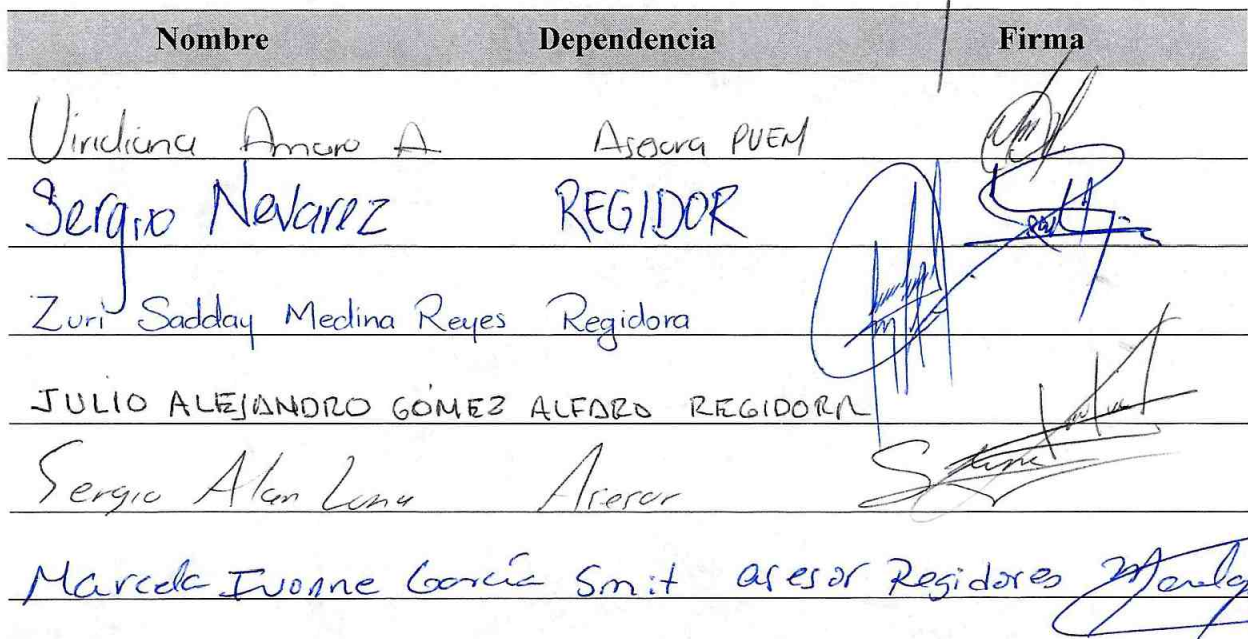 Nombre Dependencia Firma
Viridiana Amaro A Asesora PVEM
Sergio Nevarez REGIDOR
Zuri Sadday Medina Reyes Regidora
JULIO ALEJANDRO GÓMEZ ALFARO REGIDOR
Sergio Alan Luna Asesor
Marcela Ivonne García Smit asesor Regidores